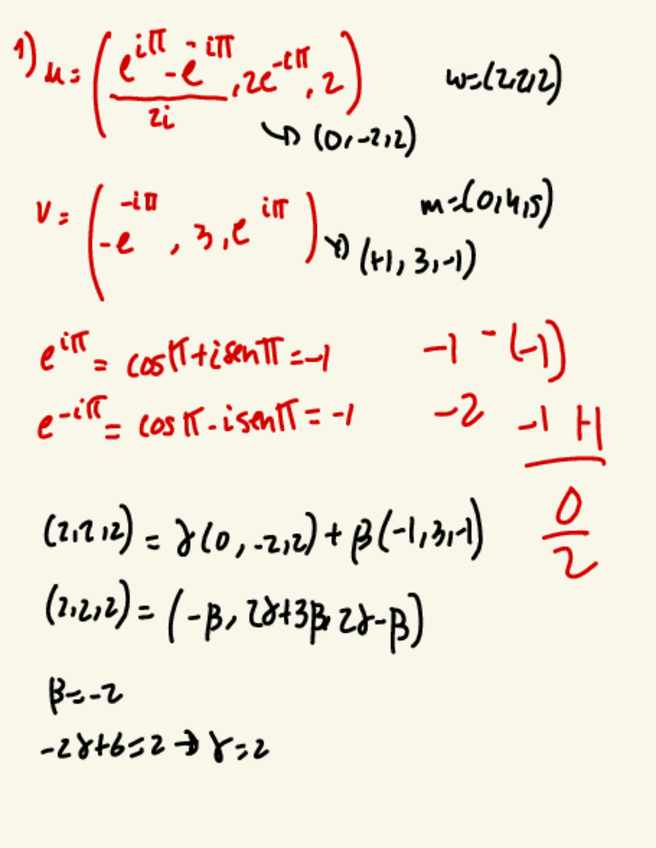 1) u = ((e^{iπ} - e^{-iπ})/2i, 2e^{-iπ}, 2) w=(2,2,2)
↳ (0,-2,2)
v = (-e^{-iπ}, 3, e^{iπ}) → (+1, 3, -1) m=(0,4,5)
e^{iπ} = cosπ+isenπ=-1 -1 -(-1)
e^{-iπ} = cosπ-isenπ=-1 -2 -1 +1
0/2
(2,2,2) = γ(0,-2,2)+β(-1,3,-1)
(2,2,2) = (-β, 2γ+3β, 2γ-β)
β=-2
-2γ+6=2 → γ=2